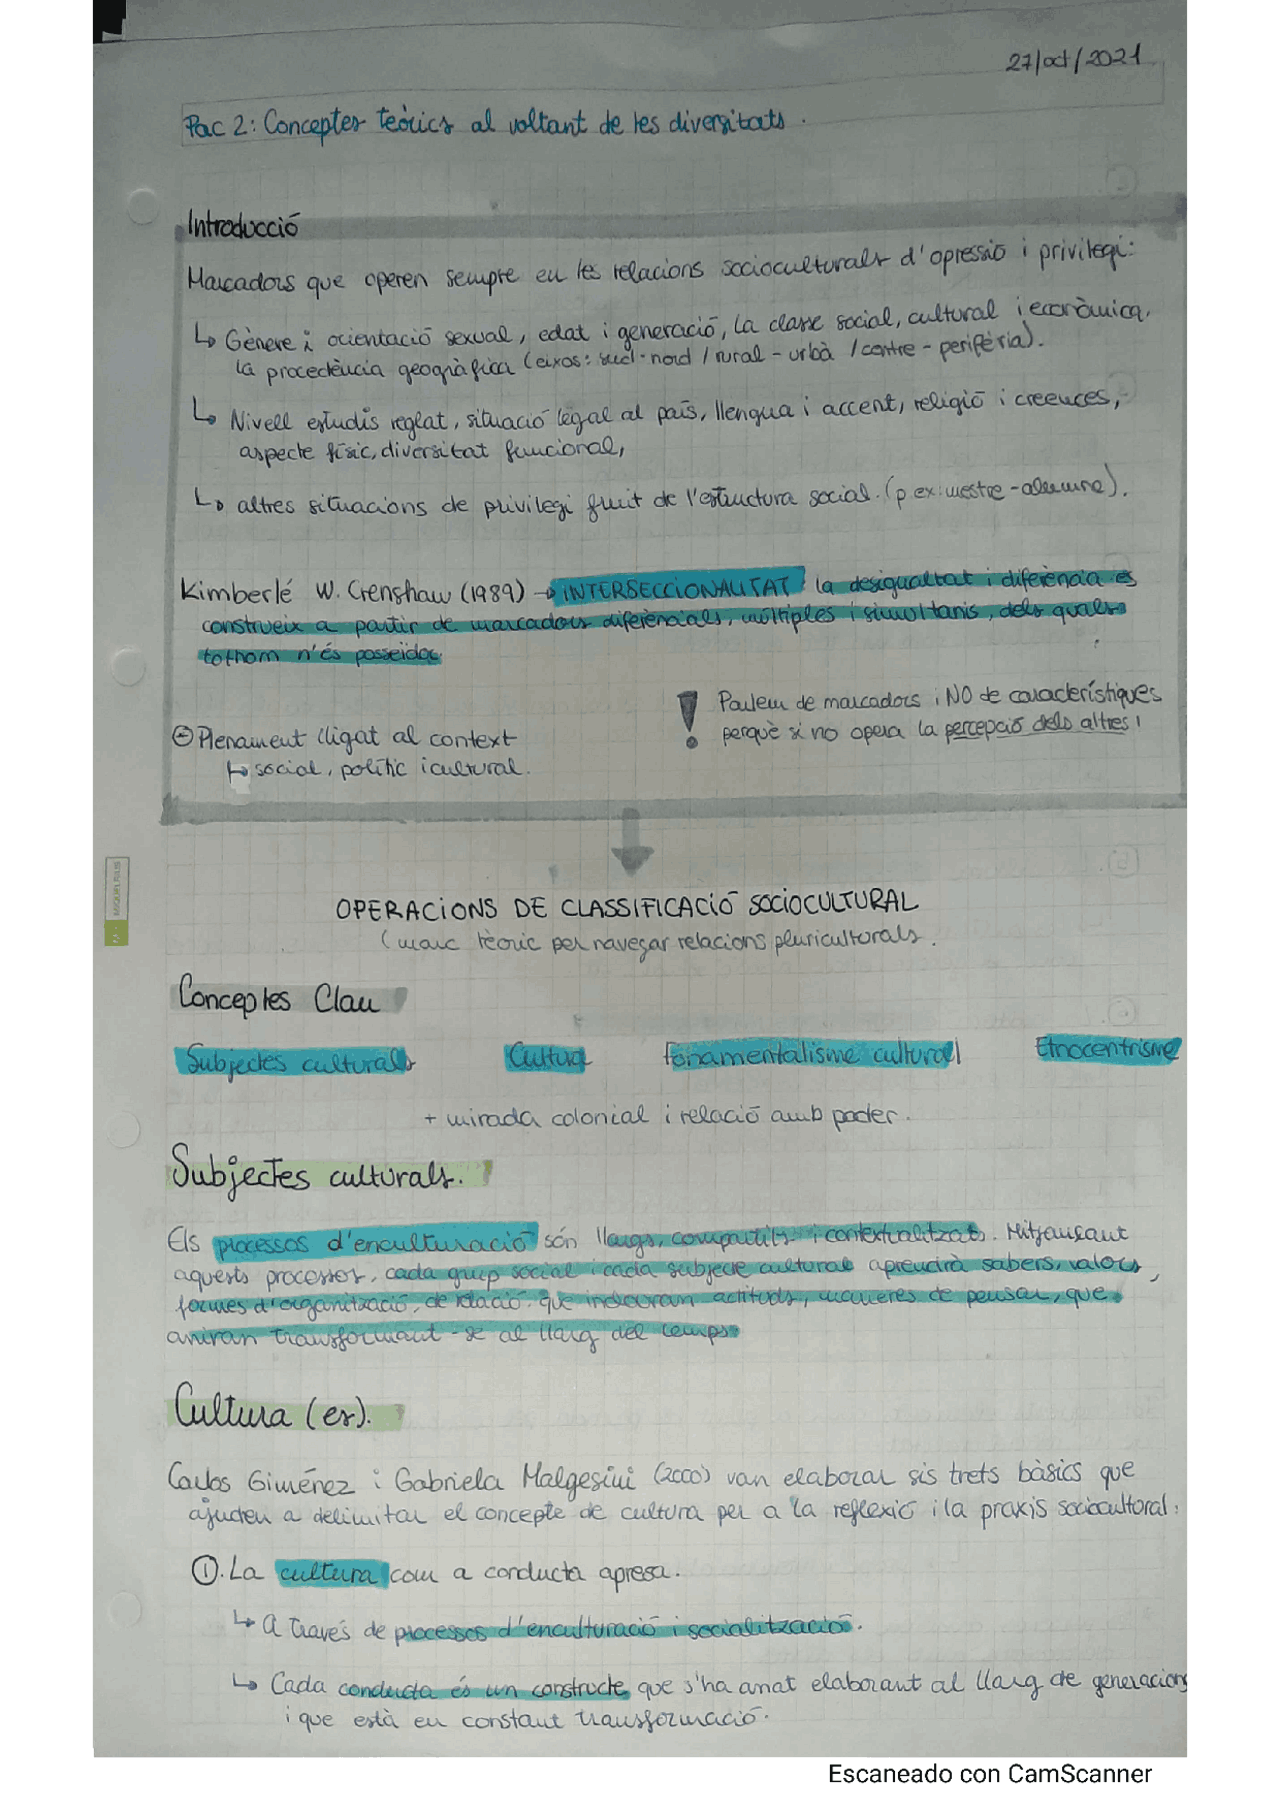 27/oct/2021
Pac 2: Conceptes teòrics al voltant de les diversitats.
Introducció
Marcadors que operen sempre en les relacions socioculturals d'opressió i privilegi:
↳ Gènere i orientació sexual, edat i generació, la classe social, cultural i econòmica,
la procedència geogràfica (eixos: sud-nord / rural-urbà / centre-perifèria).
↳ Nivell estudis reglat, situació legal al país, llengua i accent, religió i creences,
aspecte físic, diversitat funcional,
↳ altres situacions de privilegi fruit de l'estructura social. (p.ex: mestre-alumne).
Kimberlé W. Crenshaw (1989) → INTERSECCIONALITAT la desigualtat i diferència es
construeix a partir de marcadors diferencials, múltiples i simultanis, dels quals
tothom n'és posseïdor.
! Parlem de marcadors i NO de característiques
perquè si no opera la percepció dels altres!
Plenament lligat al context
↳ social, polític i cultural.
OPERACIONS DE CLASSIFICACIÓ SOCIOCULTURAL
(marc teòric per navegar relacions pluriculturals.
Conceptes Clau
Subjectes culturals Cultura fonamentalisme cultural Etnocentrisme
+ mirada colonial i relació amb poder.
Subjectes culturals.
Els processos d'enculturació són llargs, compartits i contextualitzats. Mitjançant
aquests processos, cada grup social i cada subjecte cultural aprendrà sabers, valors,
formes d'organització, de relació que inclouran actituds, maneres de pensar, que
aniran transformant-se al llarg del temps.
Cultura (es).
Carlos Giménez i Gabriela Malgesini (2000) van elaborar sis trets bàsics que
ajuden a delimitar el concepte de cultura per a la reflexió i la praxis sociocultural:
①. La cultura com a conducta apresa.
↳ A través de processos d'enculturació i socialització.
↳ Cada conducta és un constructe que s'ha anat elaborant al llarg de generacions
i que està en constant transformació.
MIQUELRIUS
Escaneado con CamScanner